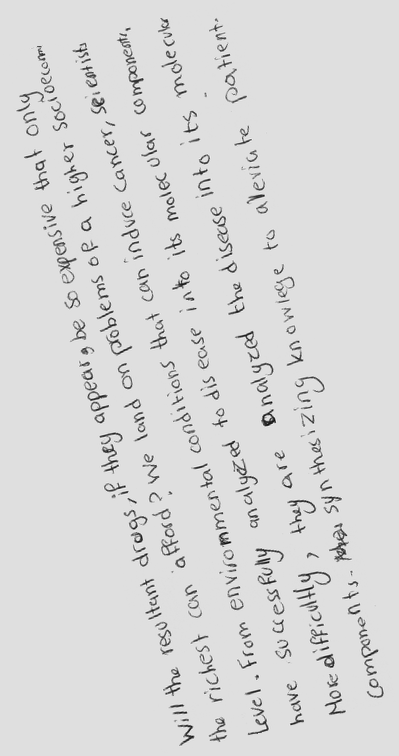 Will the resultant drugs, if they appear, be so expensive that only
the richest can afford? We land on problems of a higher
level. From environmental conditions that can induce cancer, scientists
have successfully analyzed to disease into its molecular components,
More difficultly, they are analyzed the disease into its molecular
components. synthesizing knowlege to aleviate patient.